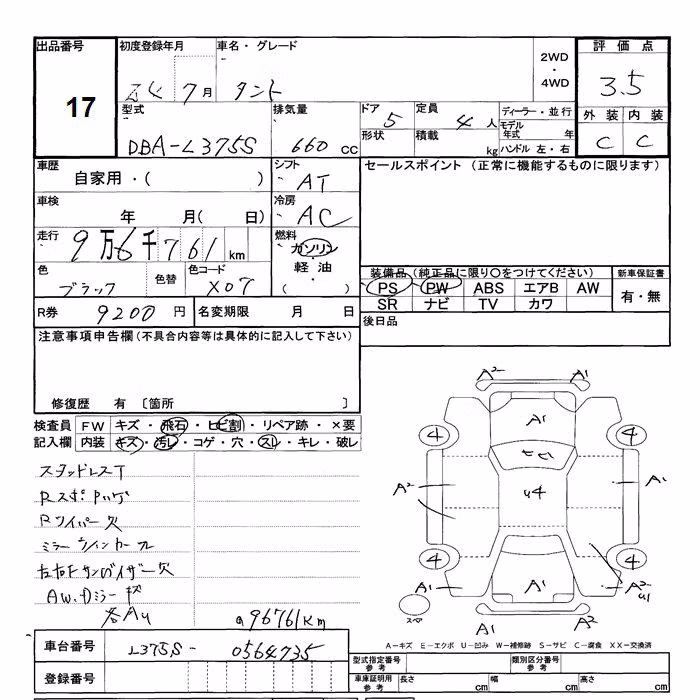 出品番号 初度登録年月 車名・グレード 2WD・4WD 評価点
17 7月 タント 3.5
型式 排気量 ドア 5 定員 4人 ディーラー・並行 外装 内装
DBA-L375S 660cc 形状 積載 kg モデル年式 年 ハンドル 左・右 C C
車歴 シフト セールスポイント (正常に機能するものに限ります)
自家用・( ) AT
車検 冷房
年 月( 日) AC
走行 燃料
9万6千761km ガソリン・軽油・( )
色 色替 色コード 装備品 (純正品に限り○をつけてください) 新車保証書
ブラック X07 PS PW ABS エアB AW 有・無
SR ナビ TV カワ
R券 9200円 名変期限 月 日 後日品
注意事項申告欄(不具合内容等は具体的に記入して下さい)
修復歴 有 〔箇所 〕
検査員 FW キズ・飛石・ヒビ割・リペア跡・×要
記入欄 内装 キズ・汚レ・コゲ・穴・スレ・キレ・破レ
スタッドレスT
Rスポ
Rワイパー欠
ミラーウィンカー
左右Fサンバイザー欠
AW、Dミラー
各AU
96761km
A2 A1
A1
4 4
A2 U4 A1
4 4
A1 A1 A2
スペア A1 A2
A-キズ E-エクボ U-凹み W-補修跡 S-サビ C-腐食 XX-交換済
車台番号 L375S-0564735
型式指定番号 参考 類別区分番号 参考
登録番号 車庫証明用 参考 長さ cm 幅 cm 高さ cm